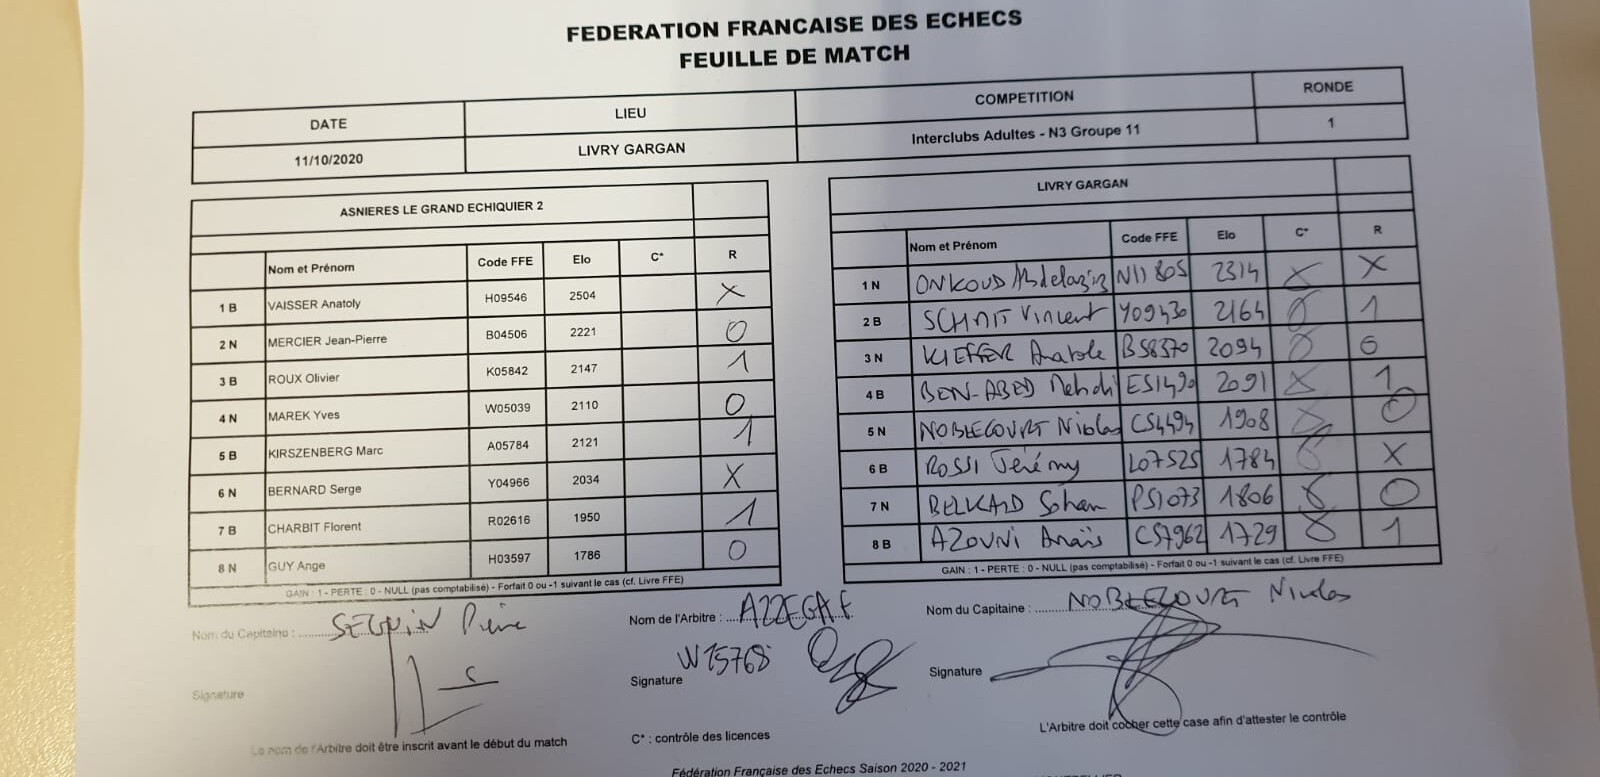 FEDERATION FRANCAISE DES ECHECS
FEUILLE DE MATCH
DATE LIEU COMPETITION RONDE
11/10/2020 LIVRY GARGAN Interclubs Adultes - N3 Groupe 11 1
ASNIERES LE GRAND ECHIQUIER 2
Nom et Prénom Code FFE Elo C* R
1 B VAISSER Anatoly H09546 2504 X
2 N MERCIER Jean-Pierre B04506 2221 0
3 B ROUX Olivier K05842 2147 1
4 N MAREK Yves W05039 2110 0
5 B KIRSZENBERG Marc A05784 2121 1
6 N BERNARD Serge Y04966 2034 X
7 B CHARBIT Florent R02616 1950 1
8 N GUY Ange H03597 1786 0
GAIN : 1 - PERTE : 0 - NULL (pas comptabilisé) - Forfait 0 ou -1 suivant le cas (cf. Livre FFE)
LIVRY GARGAN
Nom et Prénom Code FFE Elo C* R
1 N ONKOUD Abdelaziz N11805 2314 X
2 B Vincent Y09430 2164 1
3 N KIEFFER Anatole B58370 2094 0
4 B BEN-ABED Mehdi E51490 2091 1
5 N NOBLECOURT Nicolas C54494 1908 0
6 B ROSSI Jérémy L07525 1784 X
7 N BELKAID Sohan P51073 1806 0
8 B AZOUNI Anaïs C57962 1729 1
GAIN : 1 - PERTE : 0 - NULL (pas comptabilisé) - Forfait 0 ou -1 suivant le cas (cf. Livre FFE)
Nom du Capitaine : SEGUIN Pierre
Nom de l'Arbitre : AZZEGAF
Nom du Capitaine : NOBLECOURT Nicolas
W15768
Signature
Signature
Signature
Le nom de l'Arbitre doit être inscrit avant le début du match
C* : contrôle des licences
L'Arbitre doit cocher cette case afin d'attester le contrôle
Fédération Française des Echecs Saison 2020 - 2021